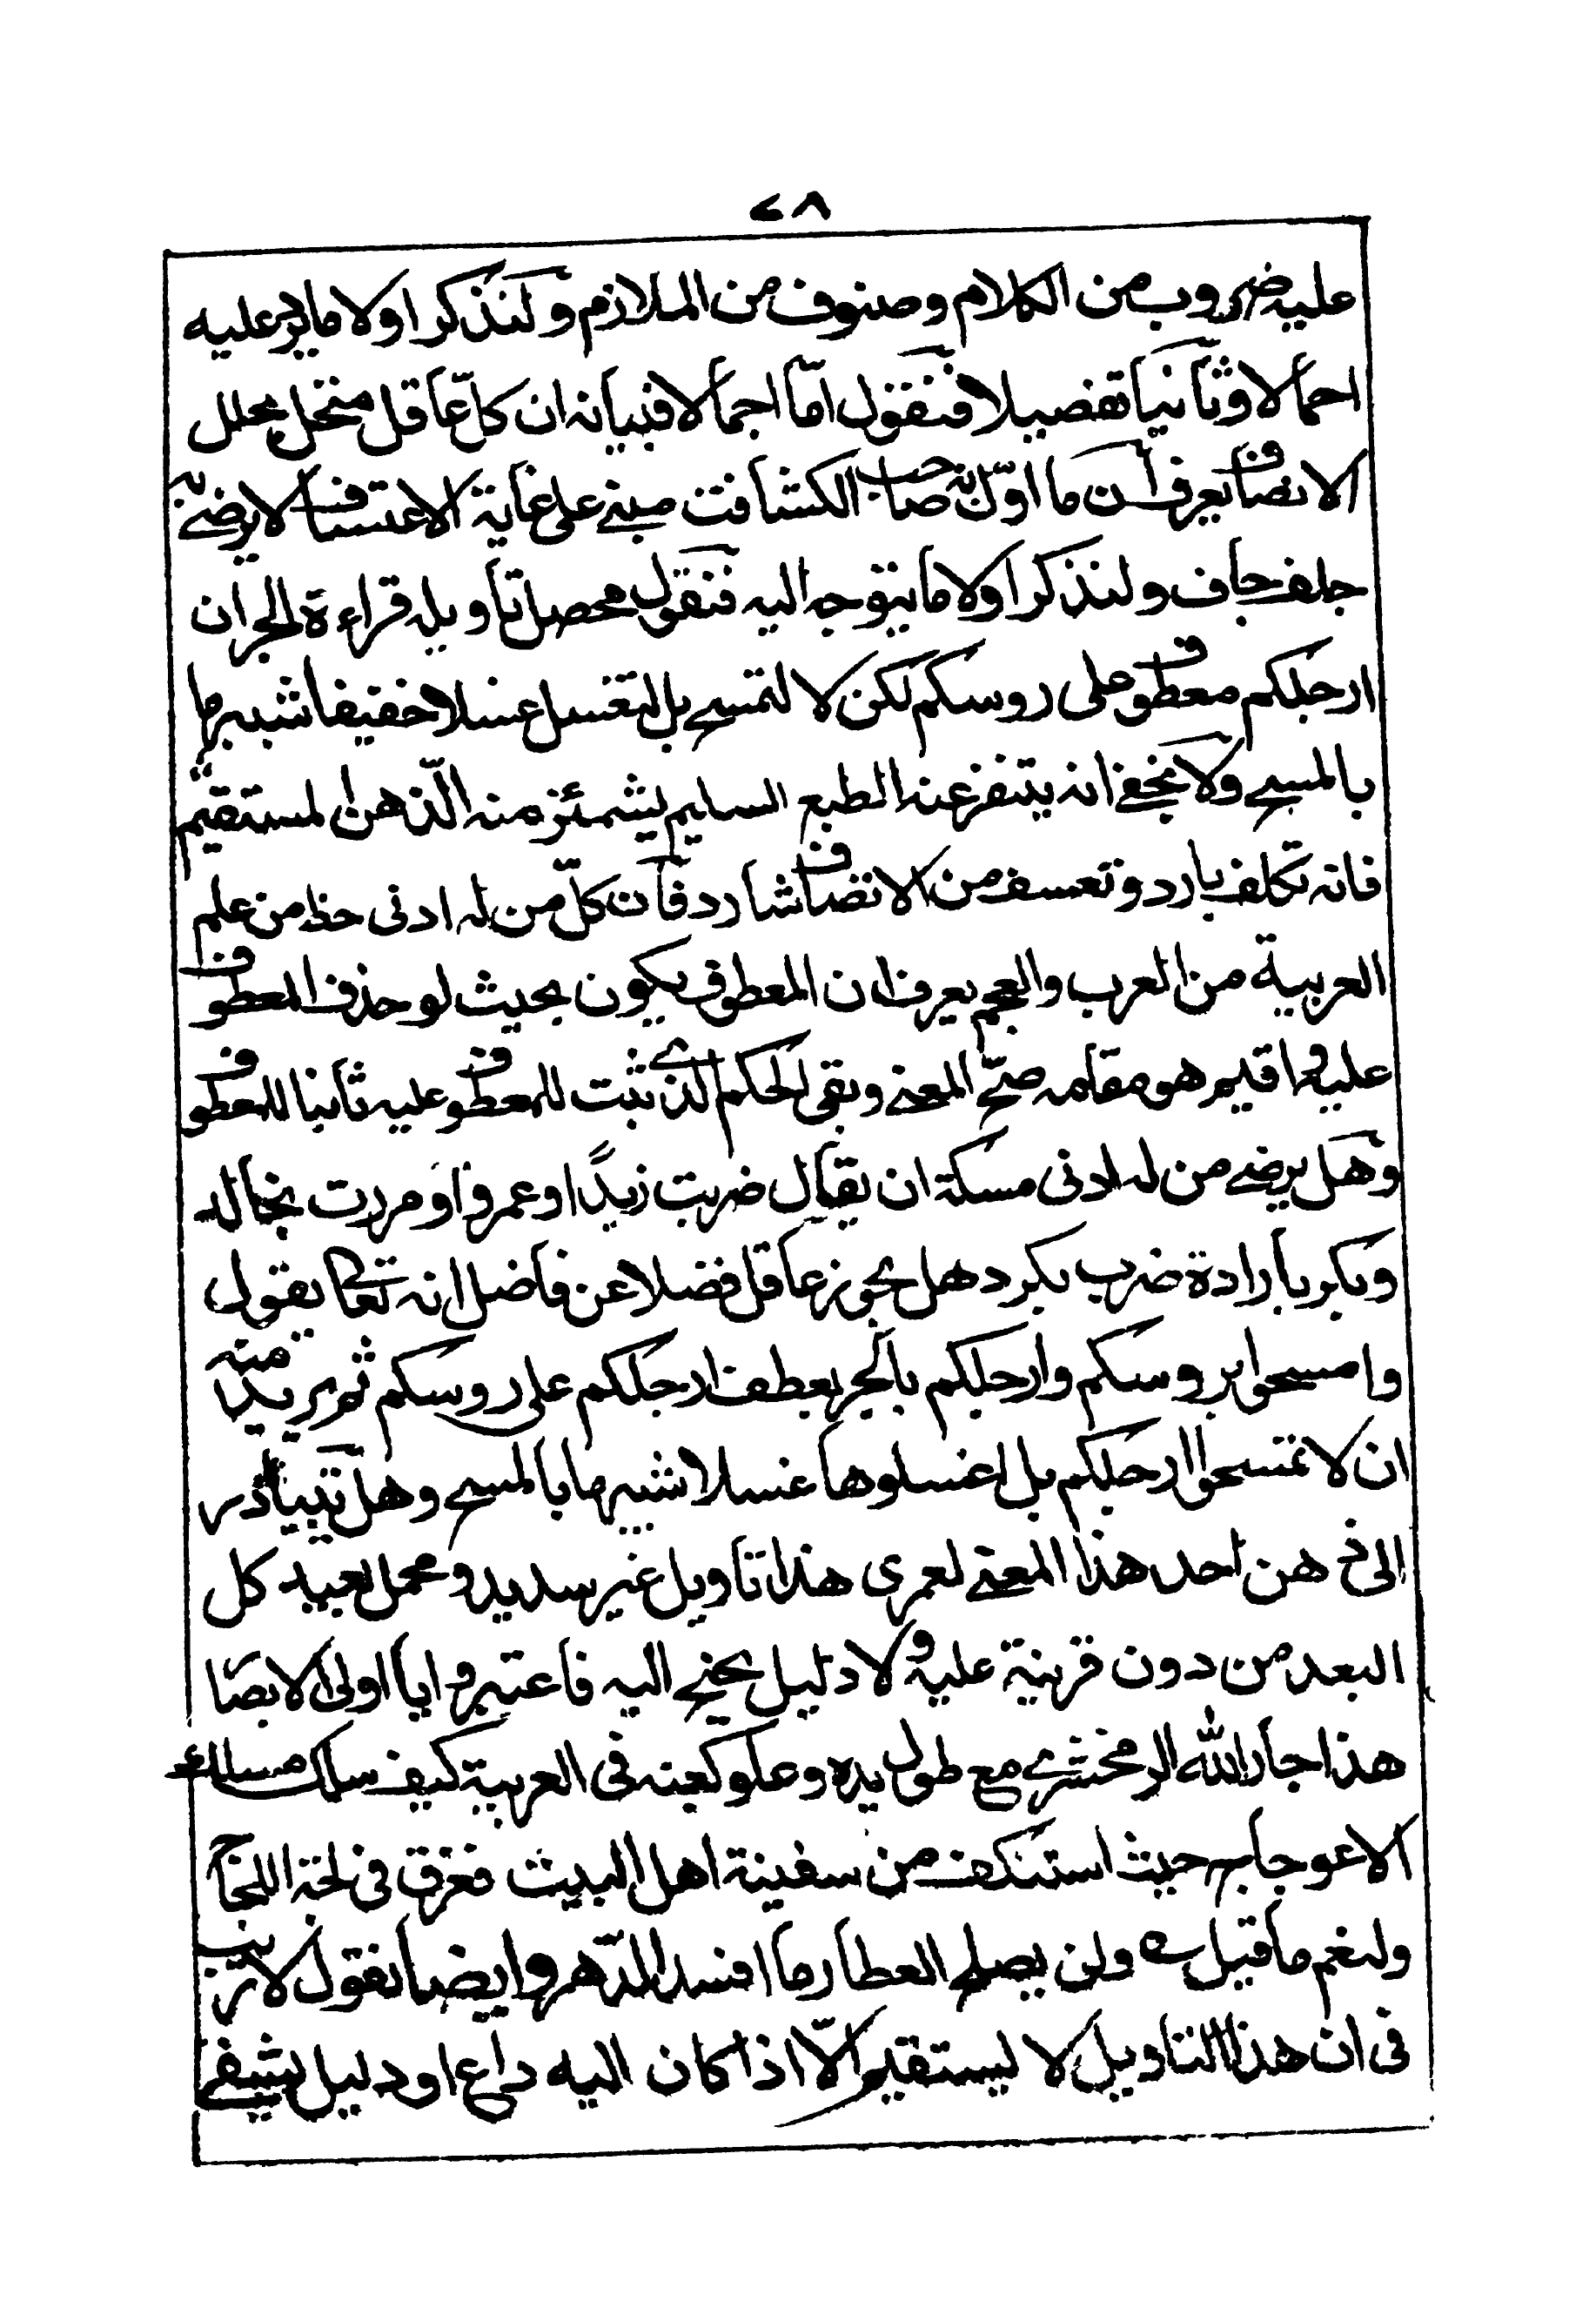 ٢٨
عليه ضروب من الكلام وصنوف من الملازم ولنذكر اولا ما يرد عليه
اجمالا وثانيا تفصيلا فنقول امّا اجمالا فبيانه ان كلّ عاقل منتحل بحلل
الانصاف يعرف ان ما اوّل به صاحب الكشاف مبنى على غاية الاعتساف لا يرضى به
جلف جاف ولنذكر اولا ما يتوجه اليه فنقول محصل تاويله قراءة الجر ان
ارجلكم معطوف على روسكم لكن لا لتمسح بل لتغسل غسلا خفيفا شبيها
بالمسح ولا يخفى انه يتنفر عنه الطبع السليم يشمئز منه الذّهن المستقيم
فانه تكلف بارد وتعسف من الانصاف شارد فان كلّ من له ادنى حظ من علم
العربية من العرب والعجم يعرف ان المعطوف يكون بحيث لو حذف المعطوف
عليه واقيم هو مقامه صحّ المعنى وبقى الحكم الذى ثبت للمعطوف عليه ثابتا للمعطوف
وهل يرضى من له ادنى مسكة ان يقال ضربت زيدًا وعمروا ومررت بخالد
وبكر بارادة ضرب بكر وهل يجوز عاقل فضلا عن فاضل انه تعالى يقول
وامسحوا بروسكم وارجلكم بالجر بعطف ارجلكم على روسكم ثم يريد منه
ان لا تمسحوا ارجلكم بل اغسلوها غسلا شبيها بالمسح وهل يتبادر
الى ذهن احد هذا المعنى لعمرى هذا تاويل غير سديد ومحمل بعيد كل
البعد من دون قرينة عليه ولا دليل يجنح اليه فاعتبروا يا اولى الابصا
هذا جار الله الزمخشرى مع طول يده وعلو كعبه فى العربية كيف سلك مسلك
الاعوجاج حيث استنكف من سفينة اهل البيت فغرق فى لجّة اللجاج
ولنعم ما قيل ولن يصلح العطار ما افسد الدّهر وايضا نقول لا ريب
فى ان هذا التاويل لا يستقيم الّا اذا كان اليه داع او دليل يشفى